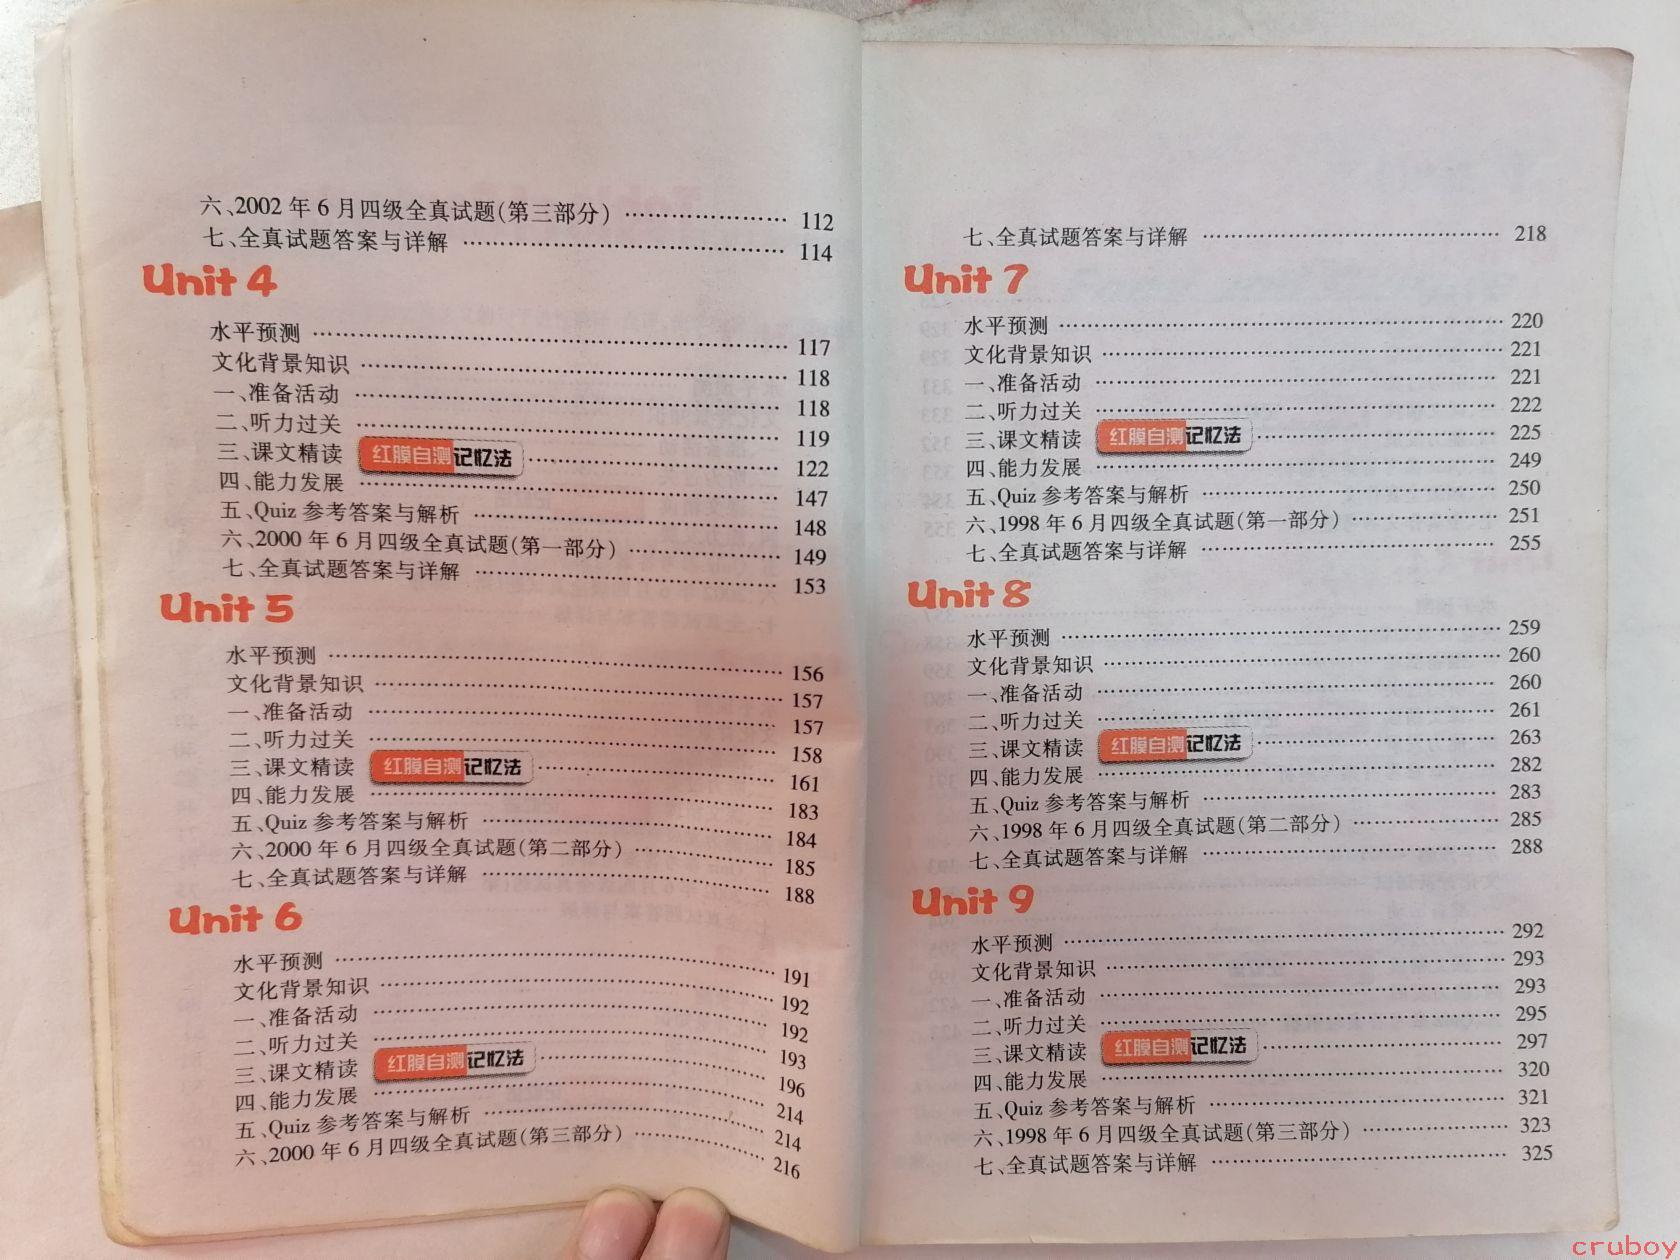 六、2002 年 6 月四级全真试题(第三部分) …………………… 112
七、全真试题答案与详解 …………………… 114
Unit 4
水平预测 …………………… 117
文化背景知识 …………………… 118
一、准备活动 …………………… 118
二、听力过关 …………………… 119
三、课文精读 红膜自测记忆法 …………………… 122
四、能力发展 …………………… 147
五、Quiz 参考答案与解析 …………………… 148
六、2000 年 6 月四级全真试题(第一部分) …………………… 149
七、全真试题答案与详解 …………………… 153
Unit 5
水平预测 …………………… 156
文化背景知识 …………………… 157
一、准备活动 …………………… 157
二、听力过关 …………………… 158
三、课文精读 红膜自测记忆法 …………………… 161
四、能力发展 …………………… 183
五、Quiz 参考答案与解析 …………………… 184
六、2000 年 6 月四级全真试题(第二部分) …………………… 185
七、全真试题答案与详解 …………………… 188
Unit 6
水平预测 …………………… 191
文化背景知识 …………………… 192
一、准备活动 …………………… 192
二、听力过关 …………………… 193
三、课文精读 红膜自测记忆法 …………………… 196
四、能力发展 …………………… 214
五、Quiz 参考答案与解析 …………………… 214
六、2000 年 6 月四级全真试题(第三部分) …………………… 216
七、全真试题答案与详解 …………………… 218
Unit 7
水平预测 …………………… 220
文化背景知识 …………………… 221
一、准备活动 …………………… 221
二、听力过关 …………………… 222
三、课文精读 红膜自测记忆法 …………………… 225
四、能力发展 …………………… 249
五、Quiz 参考答案与解析 …………………… 250
六、1998 年 6 月四级全真试题(第一部分) …………………… 251
七、全真试题答案与详解 …………………… 255
Unit 8
水平预测 …………………… 259
文化背景知识 …………………… 260
一、准备活动 …………………… 260
二、听力过关 …………………… 261
三、课文精读 红膜自测记忆法 …………………… 263
四、能力发展 …………………… 282
五、Quiz 参考答案与解析 …………………… 283
六、1998 年 6 月四级全真试题(第二部分) …………………… 285
七、全真试题答案与详解 …………………… 288
Unit 9
水平预测 …………………… 292
文化背景知识 …………………… 293
一、准备活动 …………………… 293
二、听力过关 …………………… 295
三、课文精读 红膜自测记忆法 …………………… 297
四、能力发展 …………………… 320
五、Quiz 参考答案与解析 …………………… 321
六、1998 年 6 月四级全真试题(第三部分) …………………… 323
七、全真试题答案与详解 …………………… 325
cruboy